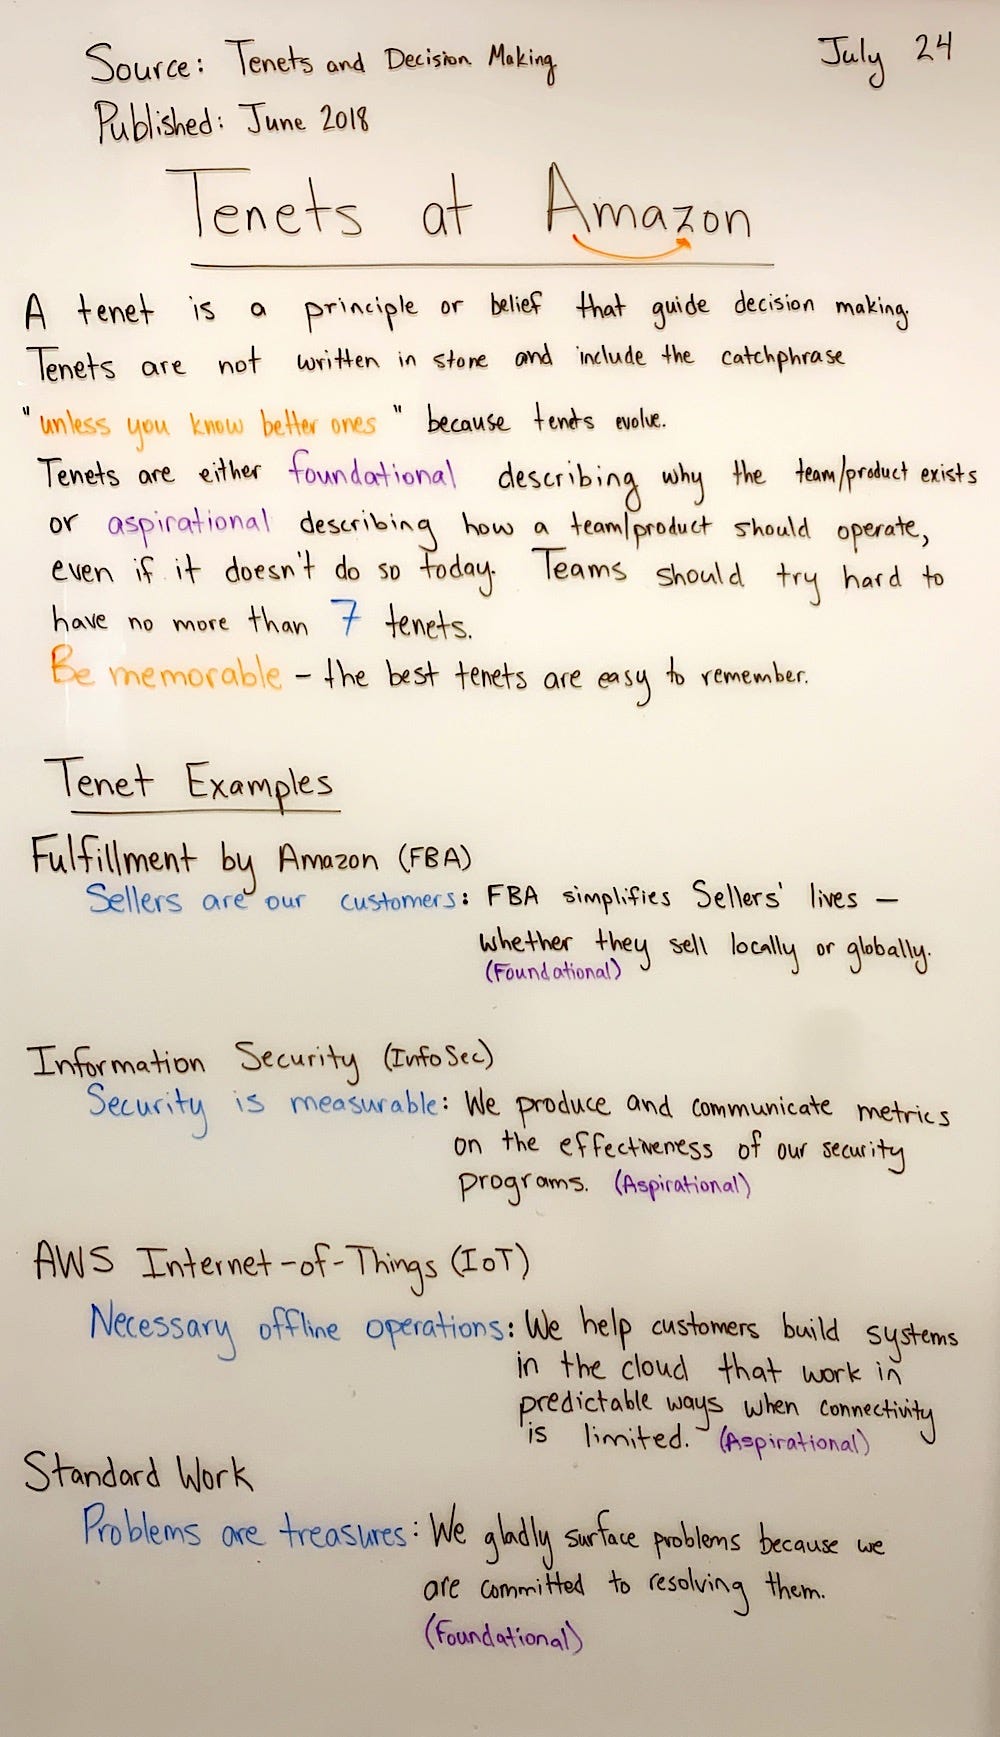 Source: Tenets and Decision Making
July 24
Published: June 2018
Tenets at Amazon
A tenet is a principle or belief that guide decision making.
Tenets are not written in stone and include the catchphrase
"unless you know better ones" because tenets evolve.
Tenets are either foundational describing why the team/product exists
or aspirational describing how a team/product should operate,
even if it doesn't do so today. Teams should try hard to
have no more than 7 tenets.
Be memorable – the best tenets are easy to remember.
Tenet Examples
Fulfillment by Amazon (FBA)
Sellers are our customers: FBA simplifies Sellers' lives –
whether they sell locally or globally.
(Foundational)
Information Security (InfoSec)
Security is measurable: We produce and communicate metrics
on the effectiveness of our security
programs. (Aspirational)
AWS Internet-of-Things (IoT)
Necessary offline operations: We help customers build systems
in the cloud that work in
predictable ways when connectivity
is limited. (Aspirational)
Standard Work
Problems are treasures: We gladly surface problems because we
are committed to resolving them.
(Foundational)